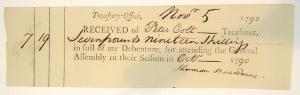 Treasury-Office, Novr 5 1790
RECEIVED of Peter Colt Treasurer,
7 19 Seven pounds nineteen Shillings
in full of my Debenture, for attending the General
Assembly in their Session in Octr 1790
Sherman Boardman